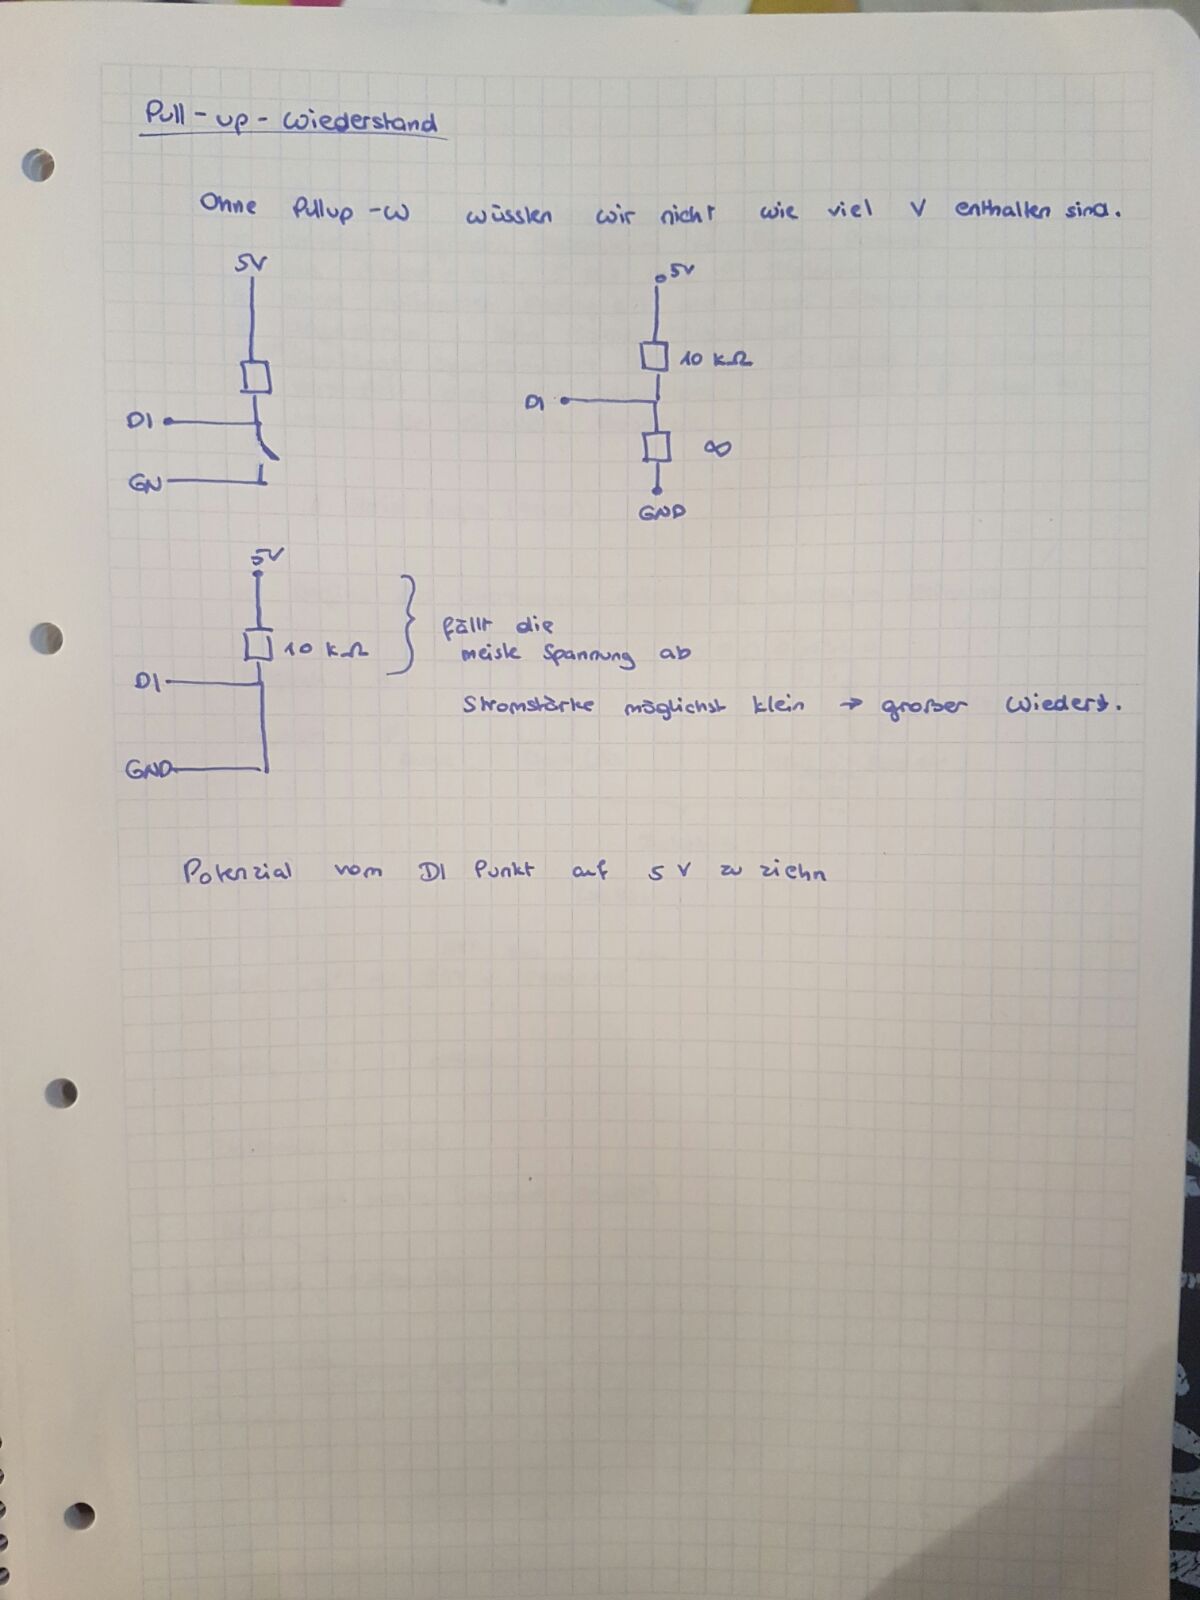 Pull-up-Wiederstand
Ohne Pullup-W wüssten wir nicht wie viel V enthalten sind.
5V
DI
GN
5V
10 kΩ
DI
∞
GND
5V
10 kΩ
DI
GND
fällt die
meiste Spannung ab
Stromstärke möglichst klein → großer Wiederst.
Potenzial vom DI Punkt auf 5 V zu ziehn